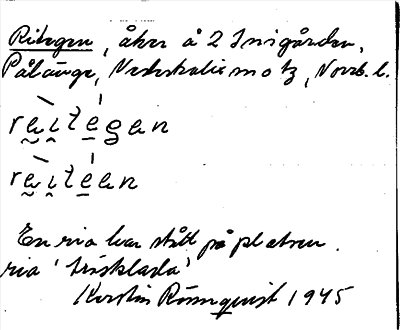 Ritegen, åker å 2 Inigården,
Pålänge, Nederkalix m o tg, Norrb. l.
reitegen
reiteen
En ria har stått på platsen.
ria 'trösklada'
Kerstin Rönnqvist 1945